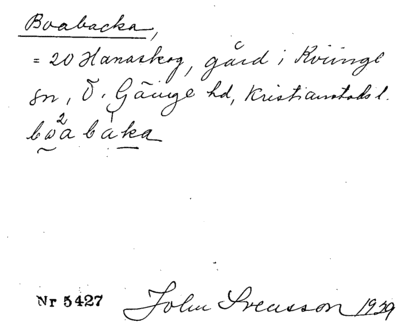 Boabacka,
= 20 Hanaskog, gård i Kviinge
sn, Ö. Gäinge hd, Kristianstads l.
bωa bàka
Nr 5427 John Svensson 1939